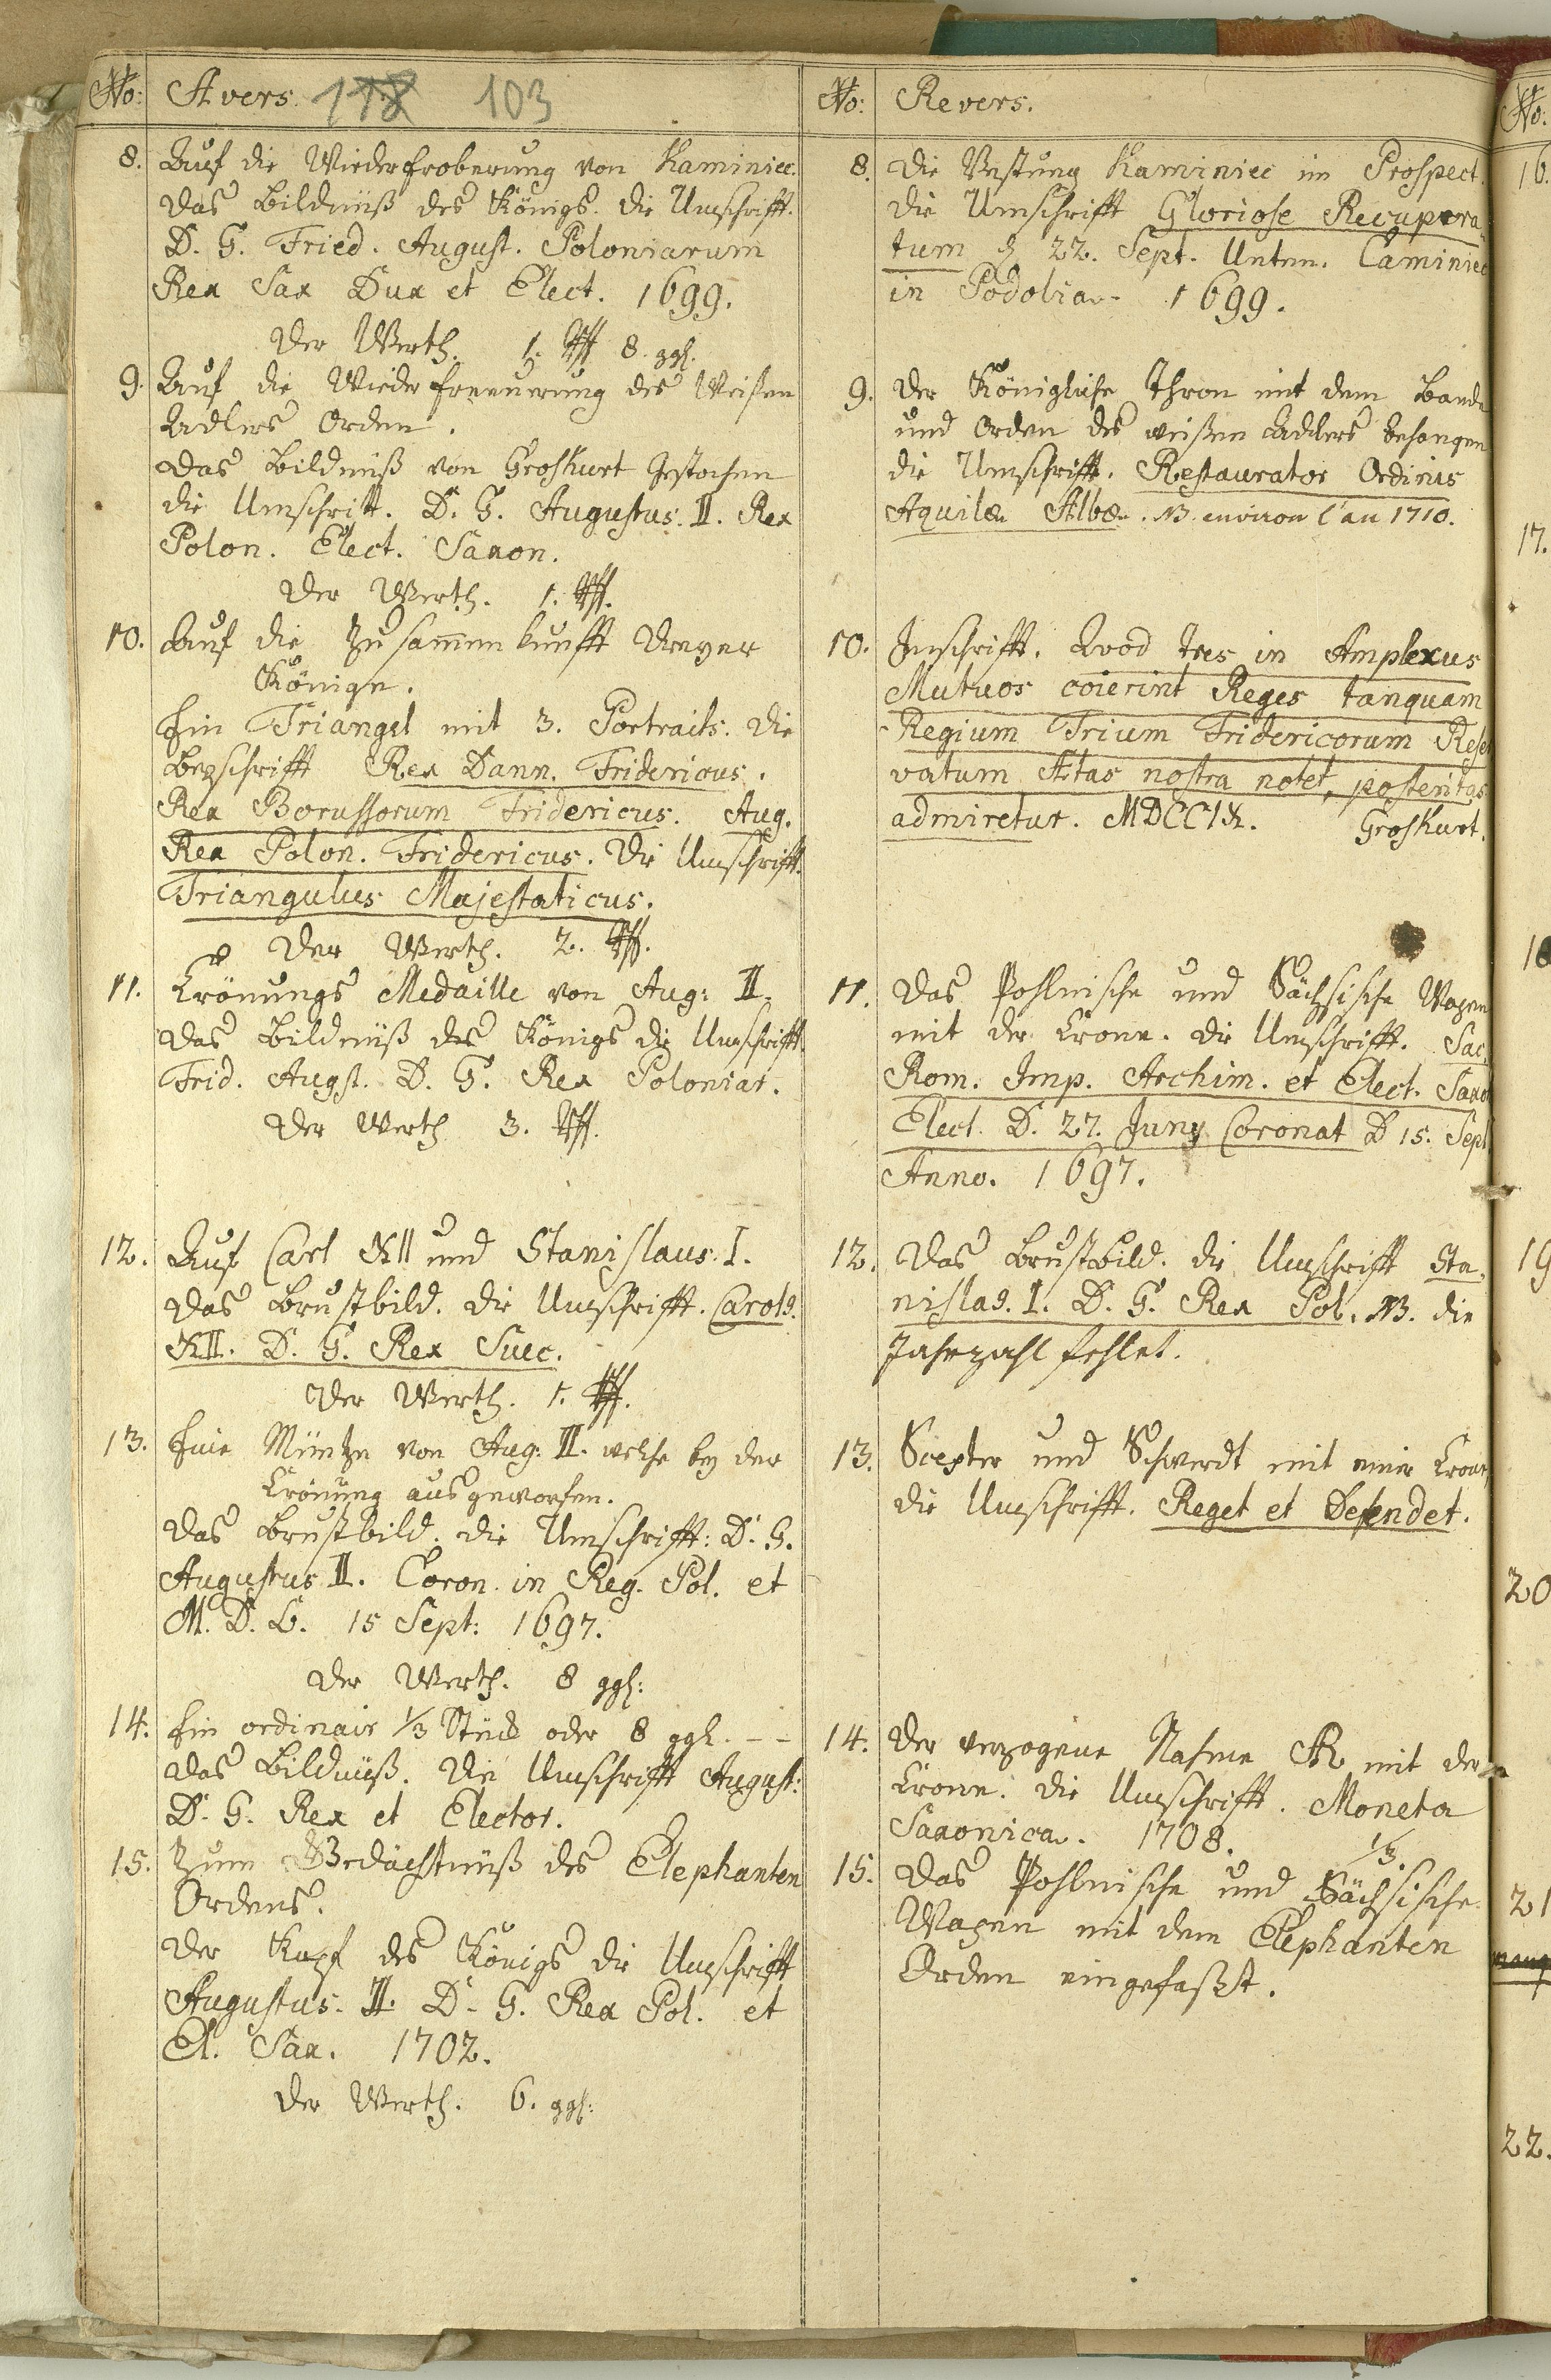 No: Avers. 118 103
8. Auf die Wiedereroberung von Kaminiec.
Das Bildnüß des Königs. die Umschrifft.
D. G. Fried. August. Poloniarum
Rex Sax Dux et Elect. 1699.
Der Werth. 1. 8. ggl.
9. Auf die Wieder Erneuerung des Weißen
Adlers Orden.
Das Bildniß von Groskurt Gestochen
die Umschrift. D. G. Augustus. II. Rex
Polon. Elect. Saxon.
Der Werth. 1.
10. Auf die Zusam̄enkunfft Dreyer
Könige.
Ein Triangel mit 3. Portraits. Die
Beyschrifft Rex Dann. Fridericus.
Rex Borussorum Fridericus. Aug.
Rex Polon. Fridericus. Die Umschrifft.
Triangulus Majestaticus.
Der Werth. 2.
11. Crönungs Medaille von Aug: II.
Das Bildnüß des Königs die Umschrifft.
Frid. Augst. D. G. Rex Poloniar.
Der Werth 3.
12. Auf Carl XII und Stanislaus. I.
Das Brustbild. die Umschrifft. Carol9.
XII. D. G. Rex Suec.
Der Werth. 1.
13. Eine Müntze von Aug: II. welche bey der
Crönung ausgeworfen.
Das Brustbild. die Umschrifft: D. G.
Augustus II. Coron. in Reg. Pol. et
M. D. L. 15 Sept: 1697.
Der Werth. 8 ggl:
14. Ein ordinair 1/3 Stück oder 8 ggl. - -
Das Bildnüß. Die Umschrifft August:
D. G. Rex et Elector.
15. Zum Gedächtnüß des Elephanten
Ordens.
Der Kopf des Königs die Umschrifft
Augustus. II. D. G. Rex Pol. et
El. Sax. 1702.
Der Werth. 6. ggl:
No: Revers.
8. Die Vestung Kaminiec im Prospect.
die Umschrifft Gloriose Recupera-
tum d 22. Sept. Unten. Caminiec
in Podolia. 1699.
9. Der Königliche Thron mit dem Bande
und Orden des weißen Adlers behangen
die Umschrifft. Restaurator Ordinis
Aquilæ Albæ. NB. environ l'an 1710.
10. Inschrifft. Quod tres in Amplexus
Mutuos coierint Reges tanquam
Regium Trium Fridericorum Reser
vatum Ætas nostra notet, posteritas
admiretur. MDCCIX. Groskurt.
11. Das Pohlnische und Sächsische Wapen
mit der Crone. die Umschrifft. Sac.
Rom. Imp. Archim. et Elect. Saxon
Elect. D. 27. Juny Coronat D 15. Sept
Anno. 1697.
12. Das Brustbild. die Umschrifft Sta-
nisla9. I. D. G. Rex Pol. NB. die
Jahrzahl fehlet.
13. Scepter und Schwerdt mit einer Crone,
die Umschrifft. Reget et Defendet.
14. Der verzogene Nahme AR mit der
Crone. die Umschrifft. Moneta
Saxonica. 1708. 1/3.
15. Das Pohlnische und Sächsische
Wapen mit dem Elephanten
Orden eingefaßt.
No.
16.
17.
18
19
20
21
22.